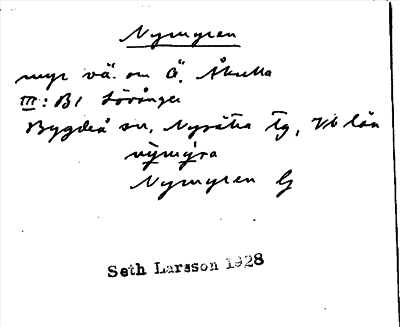 Nymyren
myr vä. om Ö. Åkulla
III: B1 Lövånger
Bygdeå sn, Nysätra tg, Vb län
nỳmỳra
Nymyren G
Seth Larsson 1928